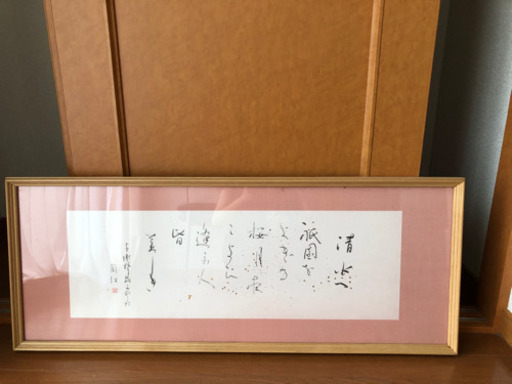 清水へ
祇園を
よぎる
桜月夜
こよひ
逢ふ人
皆
美しき